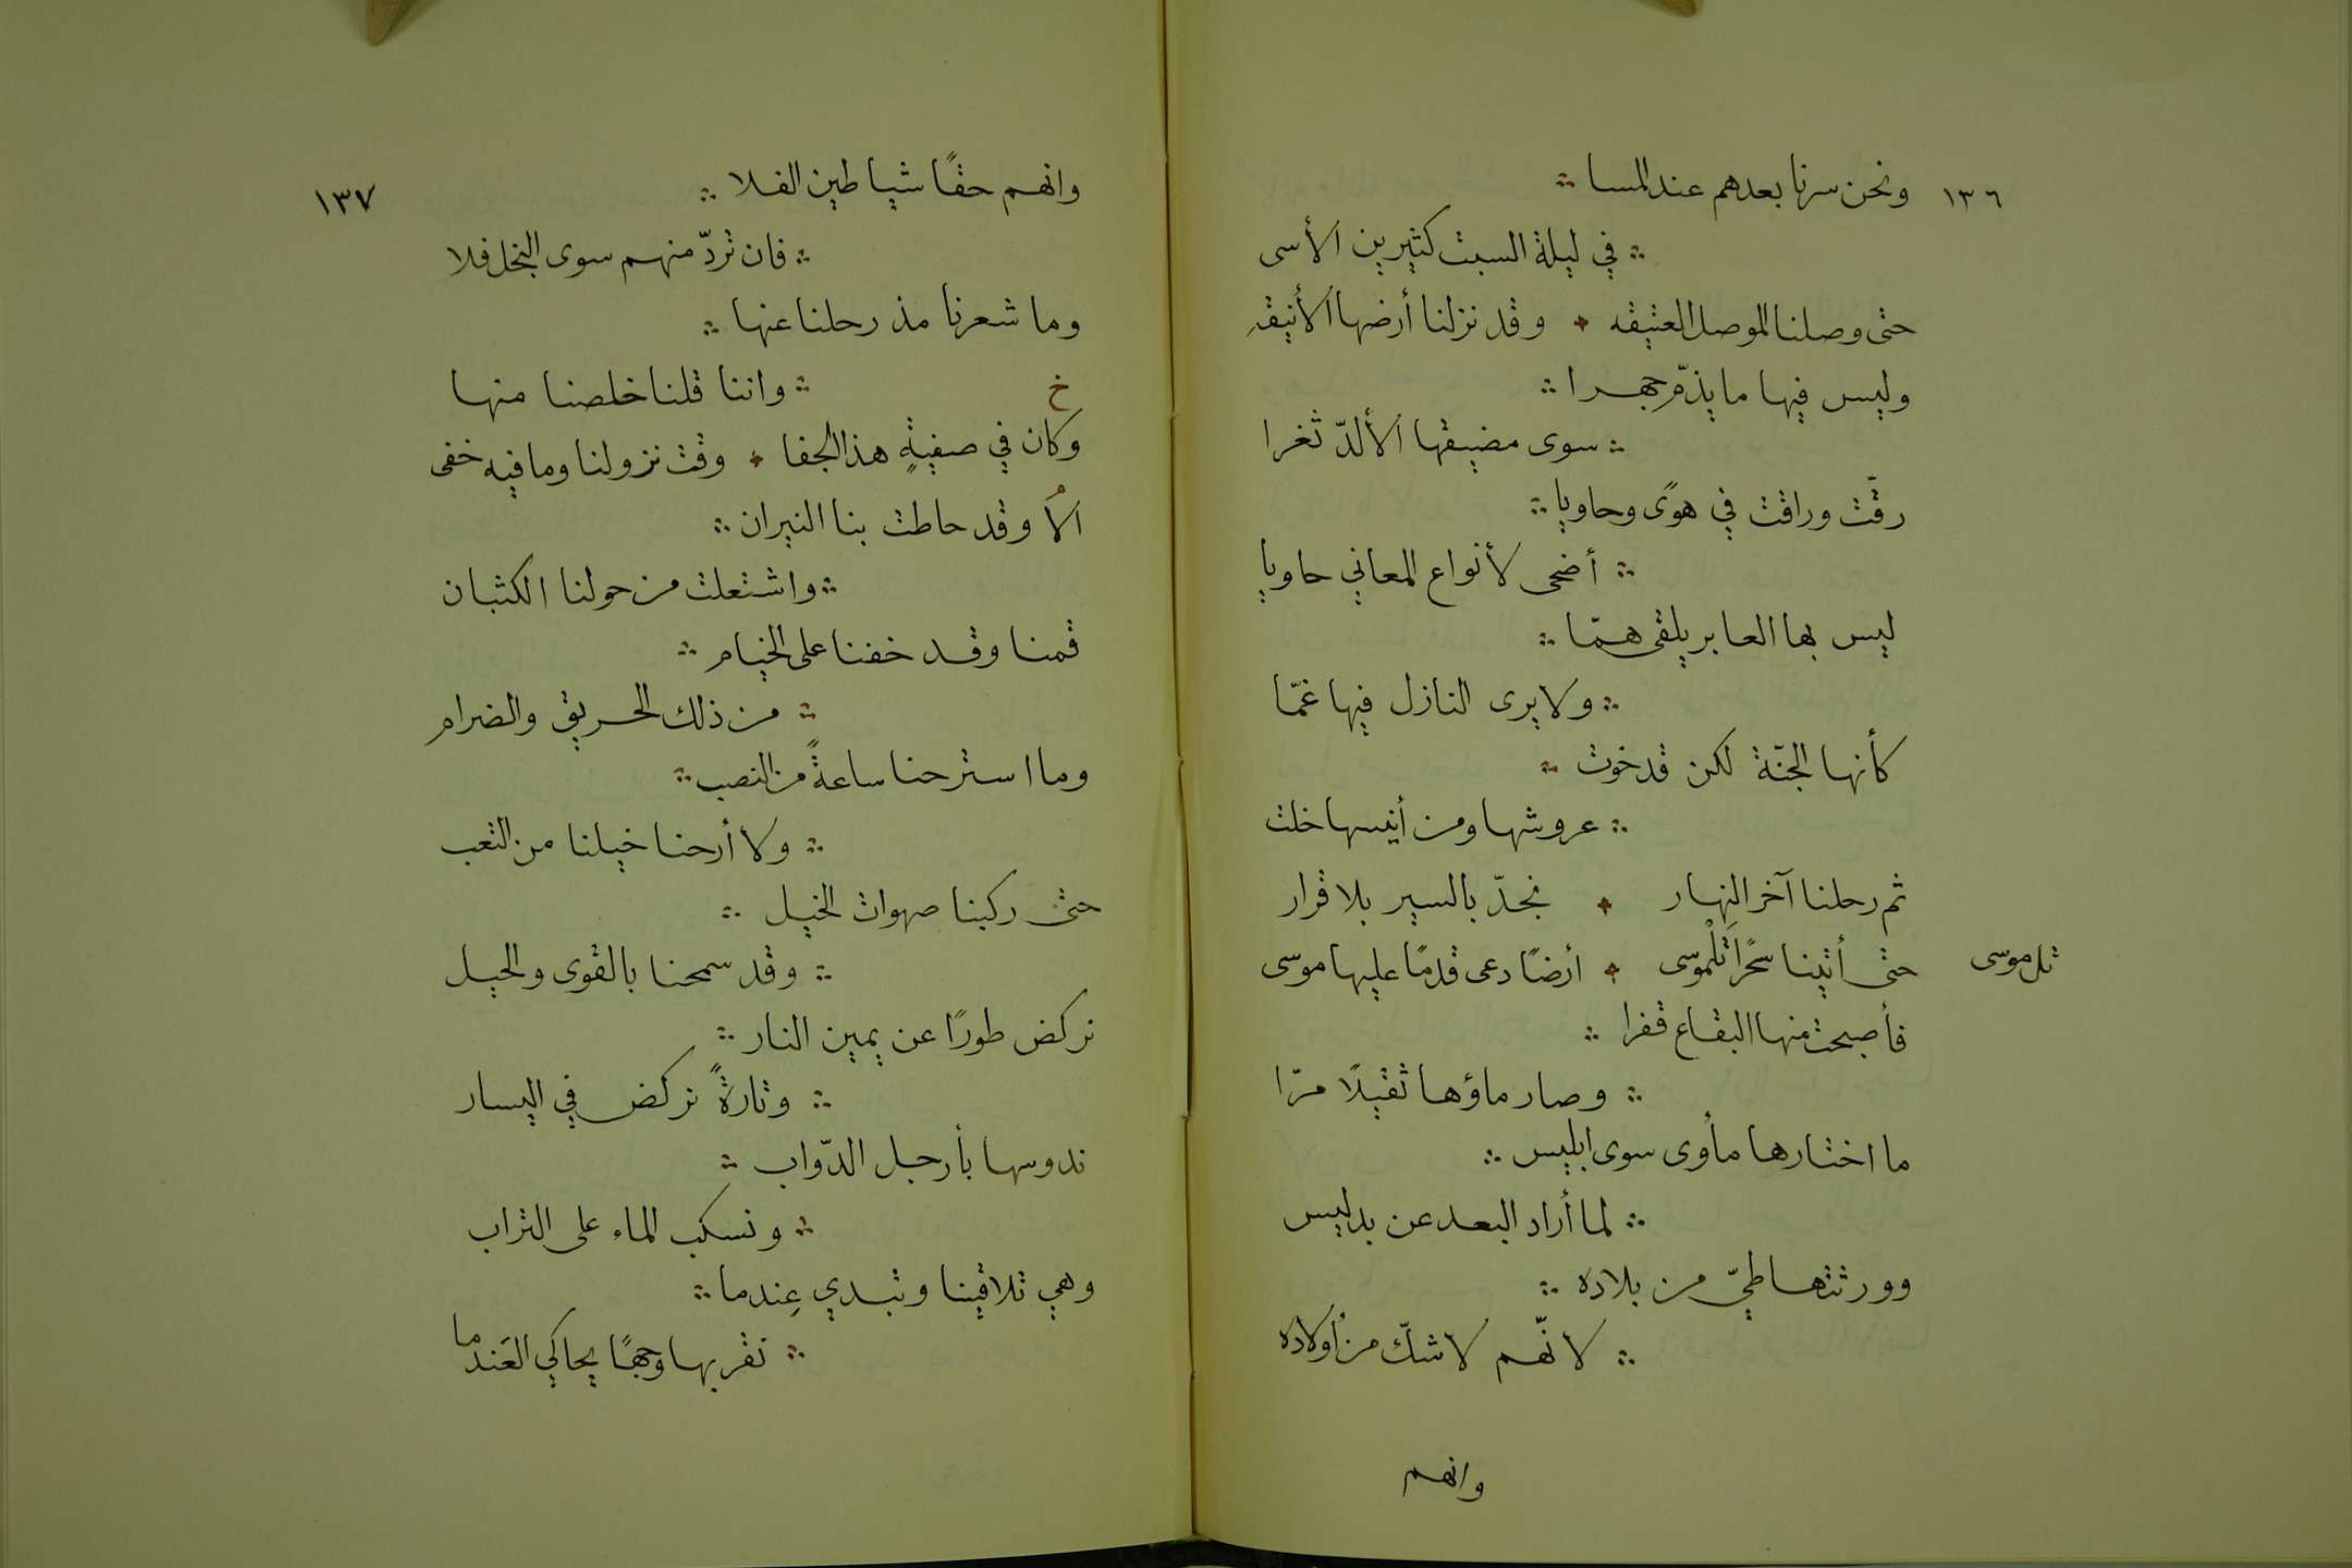 ١٣٦
ونحن سرنا بعدهم عند المسا ∴
∴ في ليلة السبت كثيرين الأسى
حتى وصلنا الموصل العتيقه ✦ وقد نزلنا أرضها الأنيقه
وليس فيها ما يذمّ جهرا ∴
∴ سوى مضيقها الألدّ ثغرا
رقّت وراقت في هوًى وحاويا ∴
∴ أضحى لأنواع المعاني حاويا
ليس بها العابر يلقى همّا ∴
∴ ولا يرى النازل فيها غمّا
كأنها الجنّة لكن قد خوت ∴
∴ عروشها ومن أنيسها خلت
ثم رحلنا آخر النهار ✦ نجدّ بالسير بلا قرار
تل موسى
حتى أتينا سحرًا تلموسى ✦ أرضًا دعى قدمًا عليها موسى
فأصبحت منها البقاع قفرا ∴
∴ وصار ماؤها ثقيلًا مرّا
ما اختارها مأوى سوى ابليس ∴
∴ لما أراد البعد عن بدليس
وورثتها طيّ من بلاده ∴
∴ لانّهم لا شكّ من أولاده
وانهم
١٣٧
وانهم حقًا شياطين الفلا ∴
∴ فان تردّ منهم سوى البخل فلا
وما شعرنا مذ رحلنا عنها ∴
∴ واننا قلنا خلصنا منها
خ
وكان في صفيةٍ هذا الجفا ✦ وقت نزولنا وما فيه خفى
الا وقد حاطت بنا النيران ∴
∴ واشتعلت من حولنا الكثبان
قمنا وقد خفنا على الخيام ∴
∴ من ذلك الحريق والضرام
وما استرحنا ساعةً من النصب ∴
∴ ولا أرحنا خيلنا من التعب
حتى ركبنا صهوات الخيل ∴
∴ وقد سمحنا بالقوى والحيل
نركض طورًا عن يمين النار ∴
∴ وتارةً نركض في اليسار
ندوسها بأرجل الدّواب ∴
∴ ونسكب الماء على التراب
وهي تلاقينا وتبدي عِندما ∴
∴ نقربها وجهًا يحاكي العَندما